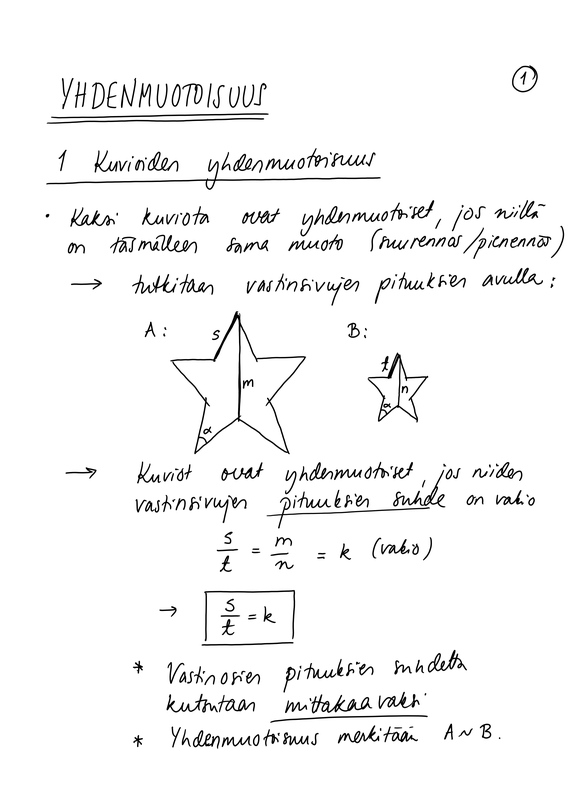 1
YHDENMUOTOISUUS
1 Kuvioiden yhdenmuotoisuus
• Kaksi kuviota ovat yhdenmuotoiset, jos niillä
on täsmälleen sama muoto (suurennos/pienennös)
→ tutkitaan vastinsivujen pituuksien avulla:
A: B:
s m α
t n α
→ Kuviot ovat yhdenmuotoiset, jos niiden
vastinsivujen pituuksien suhde on vakio
s/t = m/n = k (vakio)
→ s/t = k
* Vastinosien pituuksien suhdetta
kutsutaan mittakaavaksi.
* Yhdenmuotoisuus merkitään A ~ B.